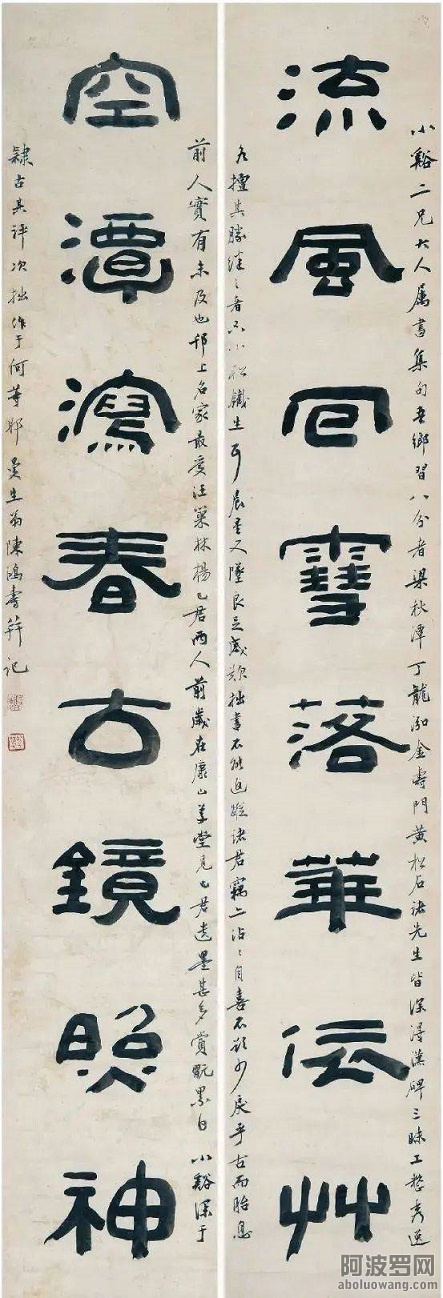 小谿二兄大人属書集句吾鄉習八分者梁秋潭丁龍泓金壽門黃松石諸先生皆深得漢碑三昧工整秀逸
流風回雪落華依艸
各擅其勝繼之者小松鐵生耳晨星又墮良足感歎拙書不能追蹤諸君竊亦沾沾自喜不敢少戾乎古而胎息
前人實有未及也邗上名家最愛汪巢林楊已君兩人前歲在康山草堂見已君遺墨甚多賞翫累日小谿深于
空潭瀉春古鏡照神
隸古其評次拙作于何等耶曼生弟陳鴻壽并記
阿波罗网
aboluowang.com